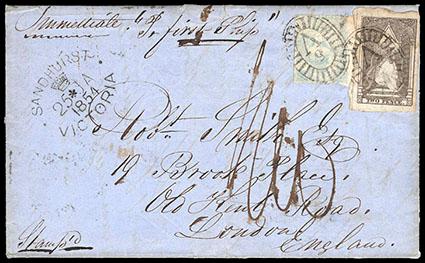 Immediate "P. first Ship"
SANDHURST
25 * JA
1854
VICTORIA
TWO PENCE
Robt. Smith Esq
19 Brook Place,
Old Kent Road.
London,
England.
Stamp'd